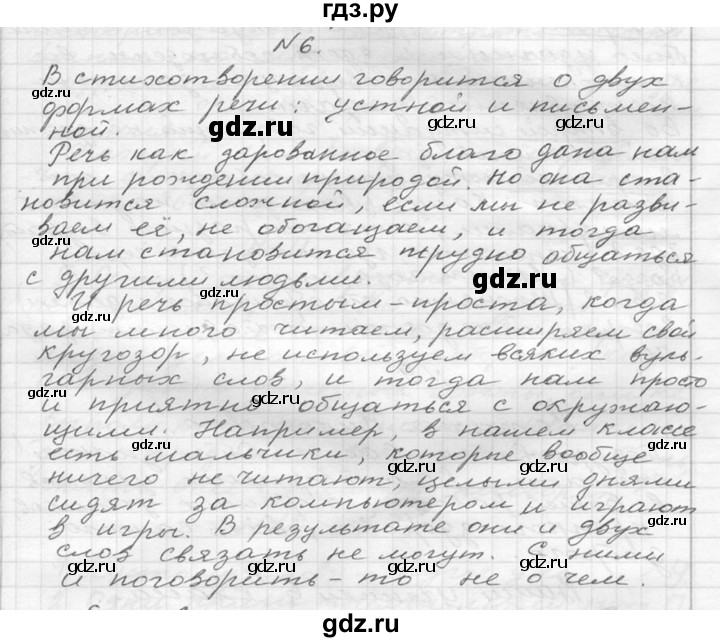 гдз.ру
N6.
В стихотворении говорится о двух
формах речи: устной и письмен-
ной.
Речь как дарованное благо дана нам
при рождении природой. Но она ста-
новится сложной, если мы не разви-
ваем её, не обогащаем, и тогда
нам становится трудно общаться
с другими людьми.
И речь простым-проста, когда
мы много читаем, расширяем свой
кругозор, не используем всяких вуль-
гарных слов, и тогда нам просто
и приятно общаться с окружаю-
щими. Например, в нашем классе
есть мальчики, которые вообще
ничего не читают, целыми днями
сидят за компьютером и играют
в игры. В результате они и двух
слов связать не могут. С ними
и поговорить-то не о чем.
gdz.ru